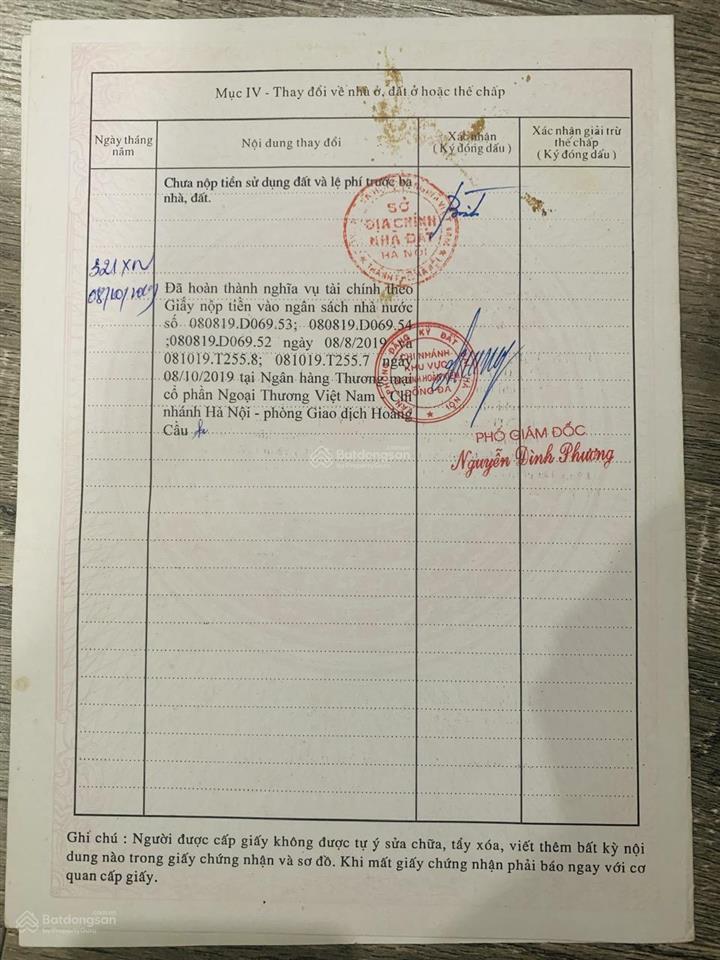 Mục IV - Thay đổi về nhà ở, đất ở hoặc thế chấp
Ngày tháng năm
Nội dung thay đổi
Xác nhận
( Ký đóng dấu )
Xác nhận giải trừ
thế chấp
( Ký đóng dấu )
Chưa nộp tiền sử dụng đất và lệ phí trước bạ
nhà, đất.
SỞ
ĐỊA CHÍNH
NHÀ ĐẤT
HÀ NỘI
321 XN
08/10/2019
Đã hoàn thành nghĩa vụ tài chính theo
Giấy nộp tiền vào ngân sách nhà nước
số 080819.D069.53; 080819.D069.54
;080819.D069.52 ngày 08/8/2019 và
081019.T255.8; 081019.T255.7 ngày
08/10/2019 tại Ngân hàng Thương mại
cổ phần Ngoại Thương Việt Nam - Chi
nhánh Hà Nội - phòng Giao dịch Hoàng
Cầu
VĂN PHÒNG ĐĂNG KÝ ĐẤT
HÀ NỘI
CHI NHÁNH
KHU VỰC
ĐỐNG ĐA
PHÓ GIÁM ĐỐC
Nguyễn Đình Phương
Batdongsan
by PropertyGuru
Ghi chú : Người được cấp giấy không được tự ý sửa chữa, tẩy xóa, viết thêm bất kỳ nội
dung nào trong giấy chứng nhận và sơ đồ. Khi mất giấy chứng nhận phải báo ngay với cơ
quan cấp giấy.
Batdongsan
.com.vn
by PropertyGuru